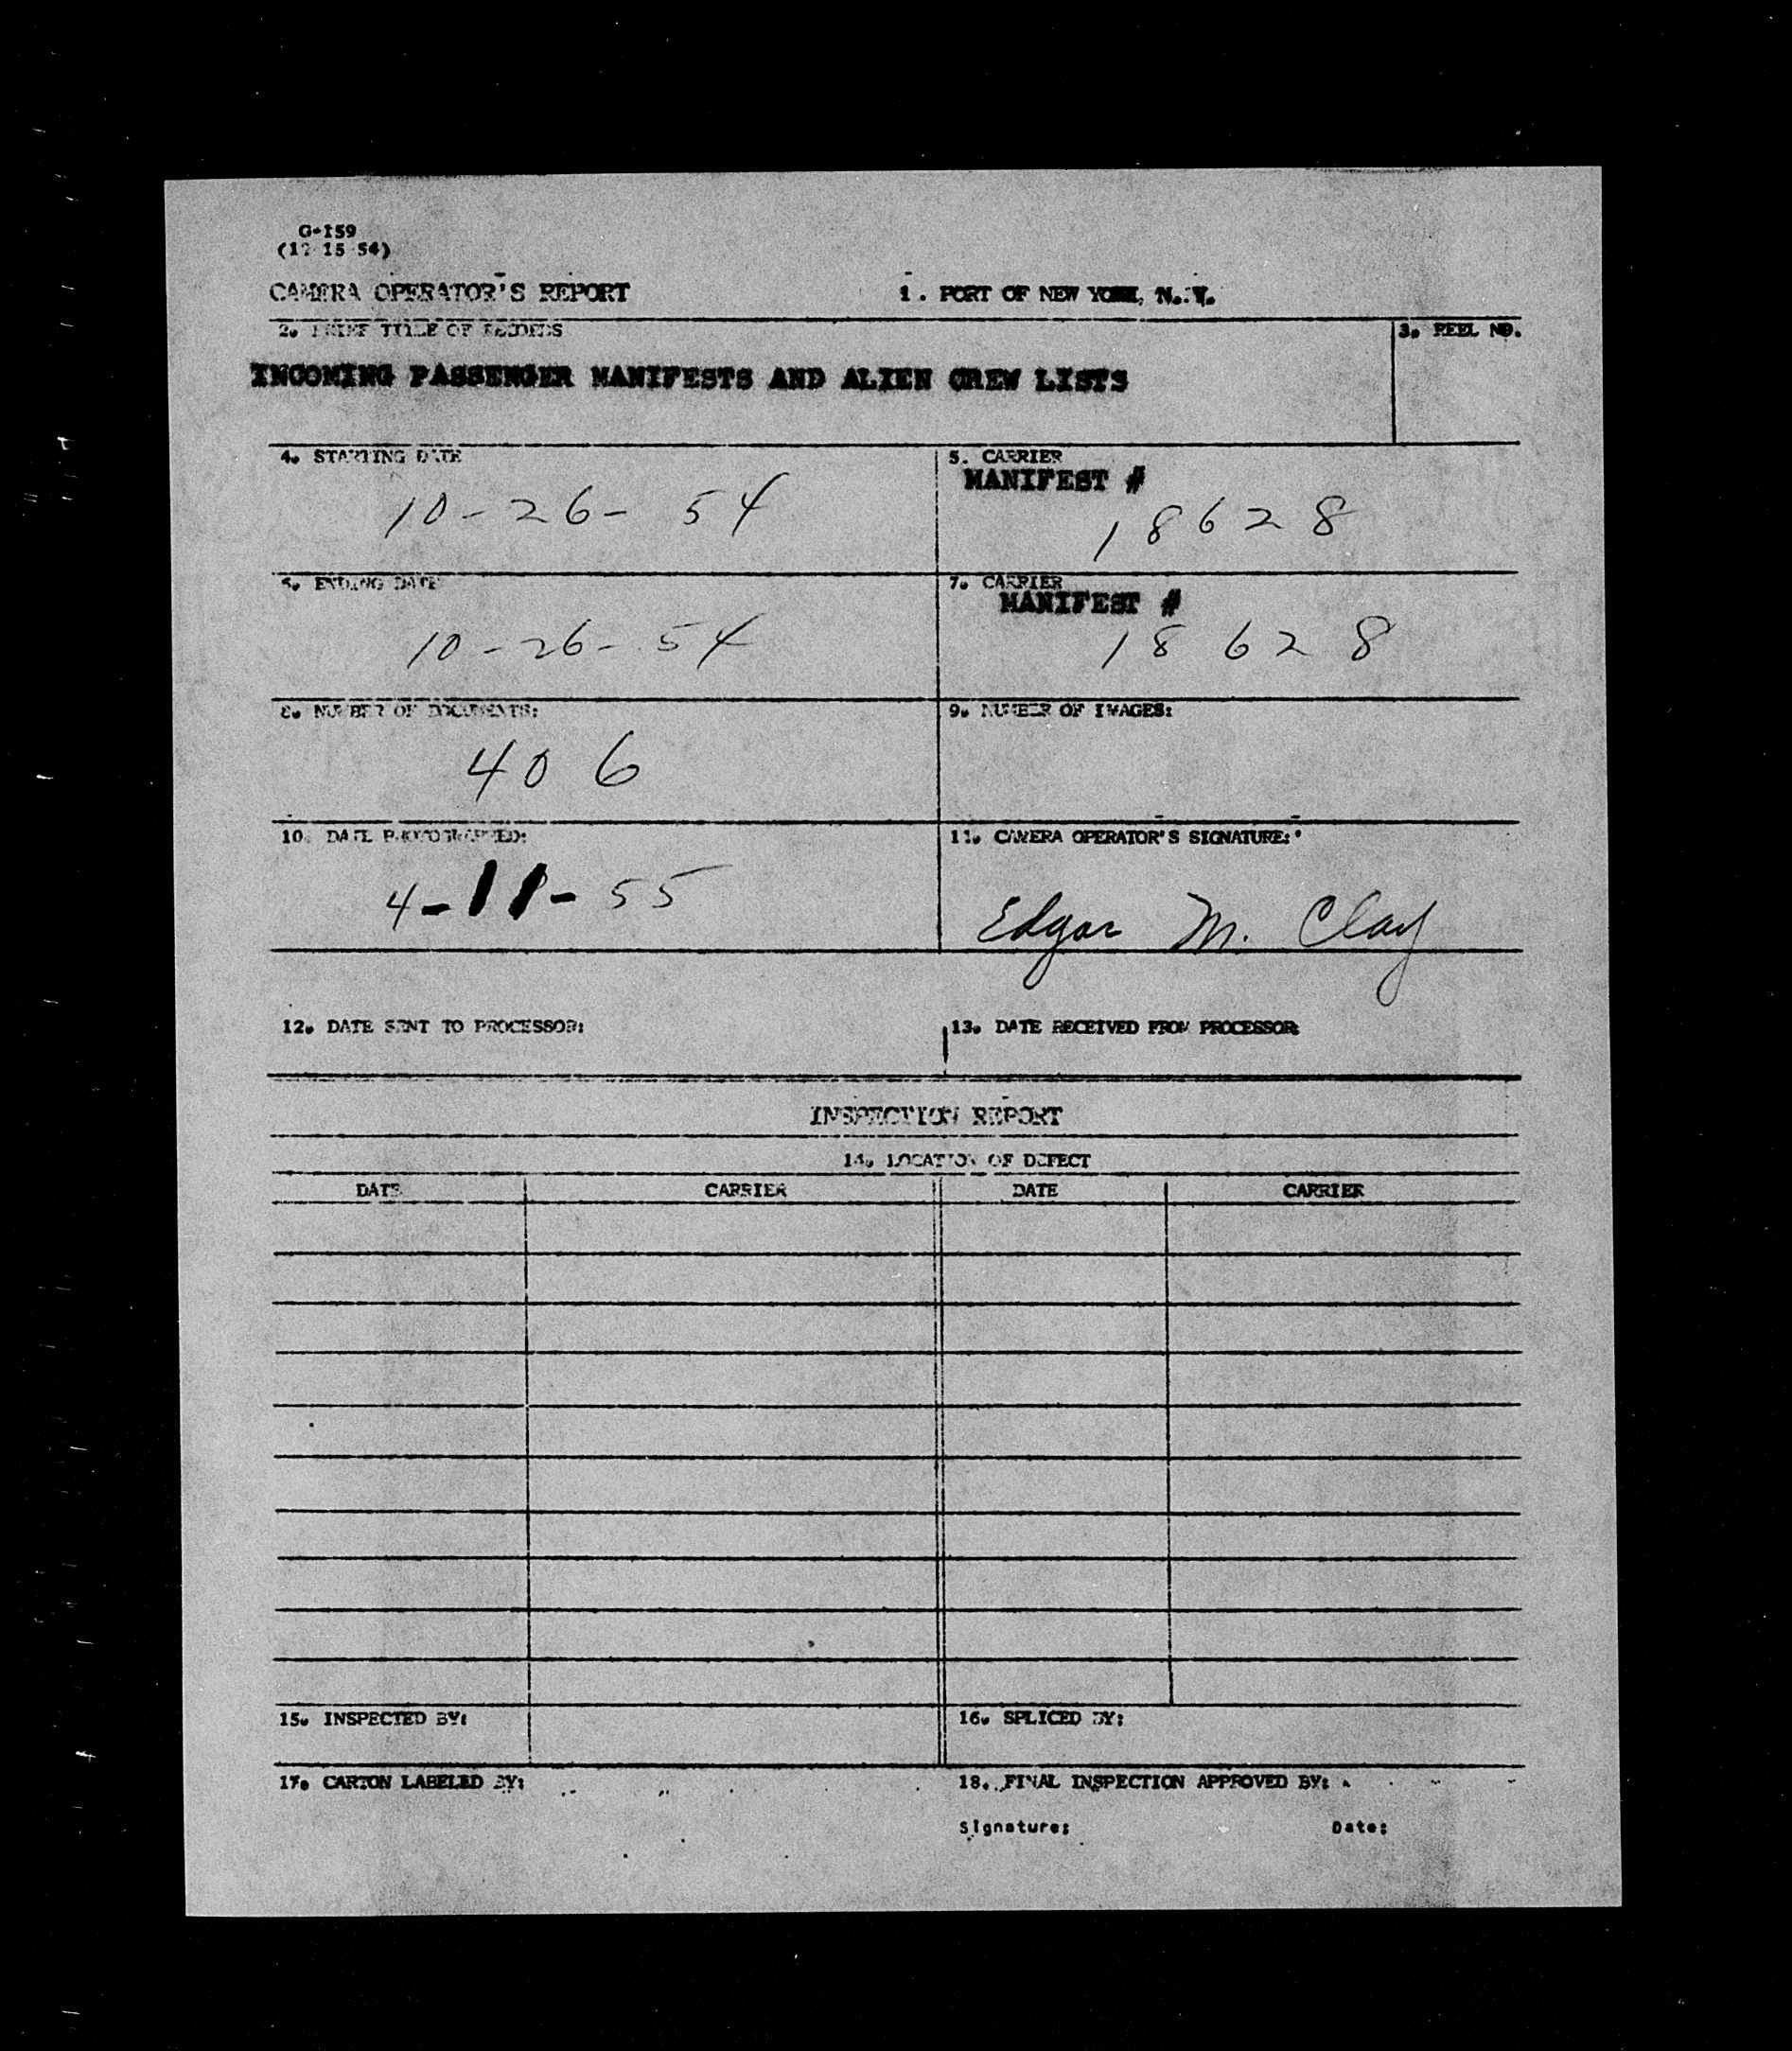 G-159
(12 15 54)
CAMERA OPERATOR'S REPORT
1. PORT OF NEW YORK, N. Y.
2. BRIEF TITLE OF RECORDS
3. REEL NO.
INCOMING PASSENGER MANIFESTS AND ALIEN CREW LISTS
4. STARTING DATE
10-26-54
5. CARRIER
MANIFEST #
18628
6. ENDING DATE
10-26-54
7. CARRIER
MANIFEST #
18628
8. NUMBER OF DOCUMENTS:
406
9. NUMBER OF IMAGES:
10. DATE PHOTOGRAPHED:
4-11-55
11. CAMERA OPERATOR'S SIGNATURE:
Edgar M. Clay
12. DATE SENT TO PROCESSOR:
13. DATE RECEIVED FROM PROCESSOR
INSPECTION REPORT
14. LOCATION OF DEFECT
DATE CARRIER DATE CARRIER
15. INSPECTED BY:
16. SPLICED BY:
17. CARTON LABELED BY:
18. FINAL INSPECTION APPROVED BY:
Signature: Date: